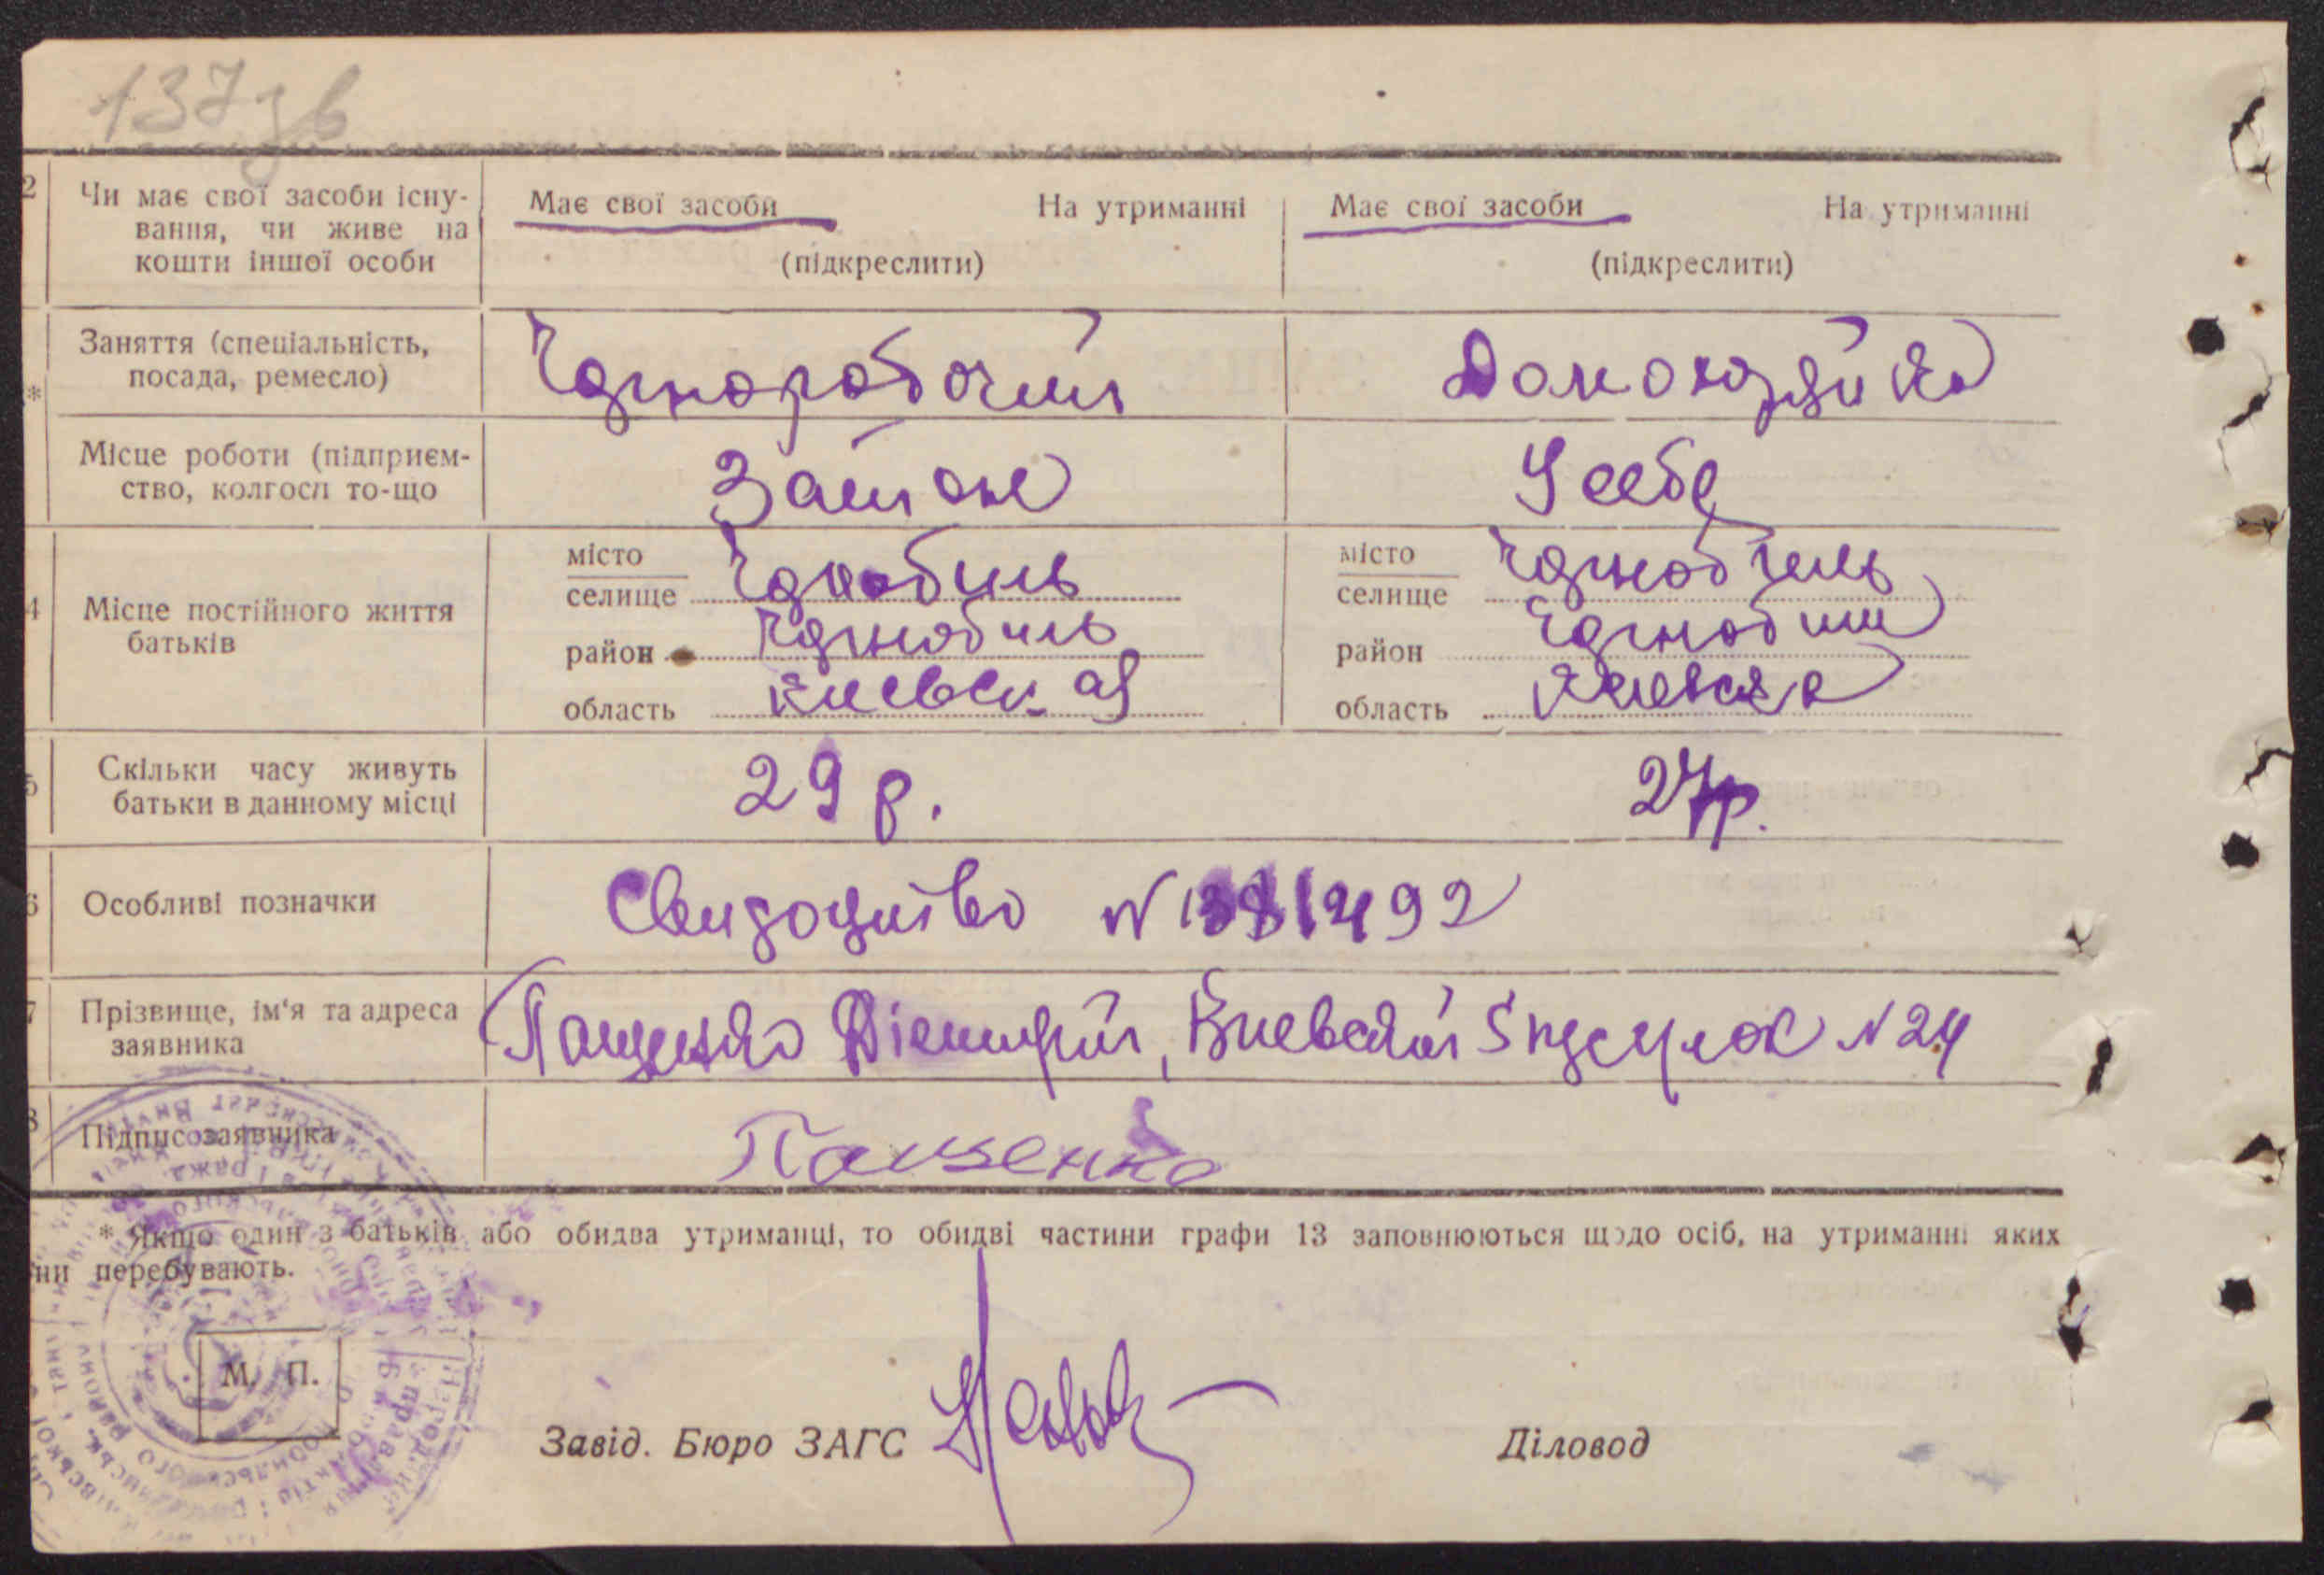 137зв
2 Чи має свої засоби існу- Має свої засоби На утриманні Має свої засоби На утриманні
вання, чи живе на
кошти іншої особи (підкреслити) (підкреслити)
Заняття (спеціальність, Чорноробочий Домохазяйка
* посада, ремесло)
Місце роботи (підприєм- Затон У себе
ство, колгосп то-що
місто місто
селище Чорнобиль селище Чорнобиль
4 Місце постійного життя
батьків район Чорнобиль район Чорнобиль
область Киевская область Киевска
5 Скільки часу живуть 29 р. 27р.
батьки в данному місці
6 Особливі позначки Свидоцтво N
7 Прізвище, ім'я та адреса Пащенко Дмитрий, Киевский N 24
заявника
8 Підпис заявника Пащенко
* Якщо один з батьків або обидва утриманці, то обидві частини графи 13 заповнюються щодо осіб, на утриманні яких
ни перебувають.
М. П.
Завід. Бюро ЗАГС Діловод